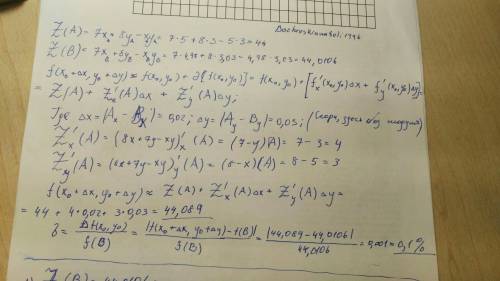 Dochovskianatoli.1996
Z(A) = 7x₀ + 8y₀ - x₀y₀ = 7·5 + 8·3 - 5·3 = 44
Z(B) = 7x₀ + 8y₀ - x₀y₀ = 7·4,98 + 8·3,03 - 4,98·3,03 = 44,0106
f(x₀+Δx, y₀+Δy) ≈ f(x₀, y₀) + d[f(x₀, y₀)] = f(x₀, y₀) + [f'x(x₀, y₀)Δx + f'y(x₀, y₀)Δy] =
= Z(A) + Z'x(A)Δx + Z'y(A)Δy;
Где Δx = |Aₓ - Bₓ| = 0,02; Δy = |Ay - By| = 0,03; (Скоро, здесь без модуля)
Z'x(A) = (8x+7y-xy)'x(A) = (7-y)(A) = 7-3 = 4
Z'y(A) = (8x+7y-xy)'y(A) = (8-x)(A) = 8-5 = 3
f(x₀+Δx, y₀+Δy) ≈ Z(A) + Z'x(A)Δx + Z'y(A)Δy =
= 44 + 4·0,02 + 3·0,03 = 44,089
δ = Δf(x₀, y₀)/f(B) = |f(x₀+Δx, y₀+Δy) - f(B)|/f(B) = |44,089 - 44,0106|/44,0106 = 0,001 = 0,1%
Z(B) = 44,0106